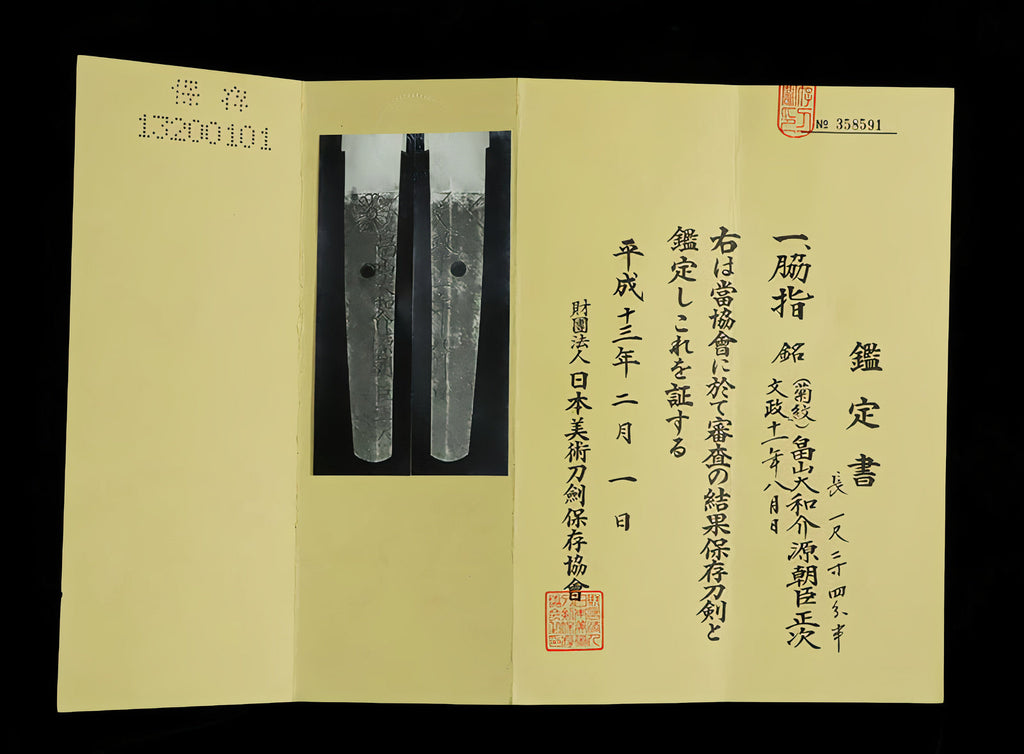 保存
13200101
№ 358591
鑑定書
一、脇指
銘
(菊紋)畠山大和介源朝臣正次
文政十一年八月日
長一尺二寸四分半
右は當協會に於て審査の結果保存刀剣と
鑑定しこれを証する
平成十三年二月一日
財團法人日本美術刀劍保存協會